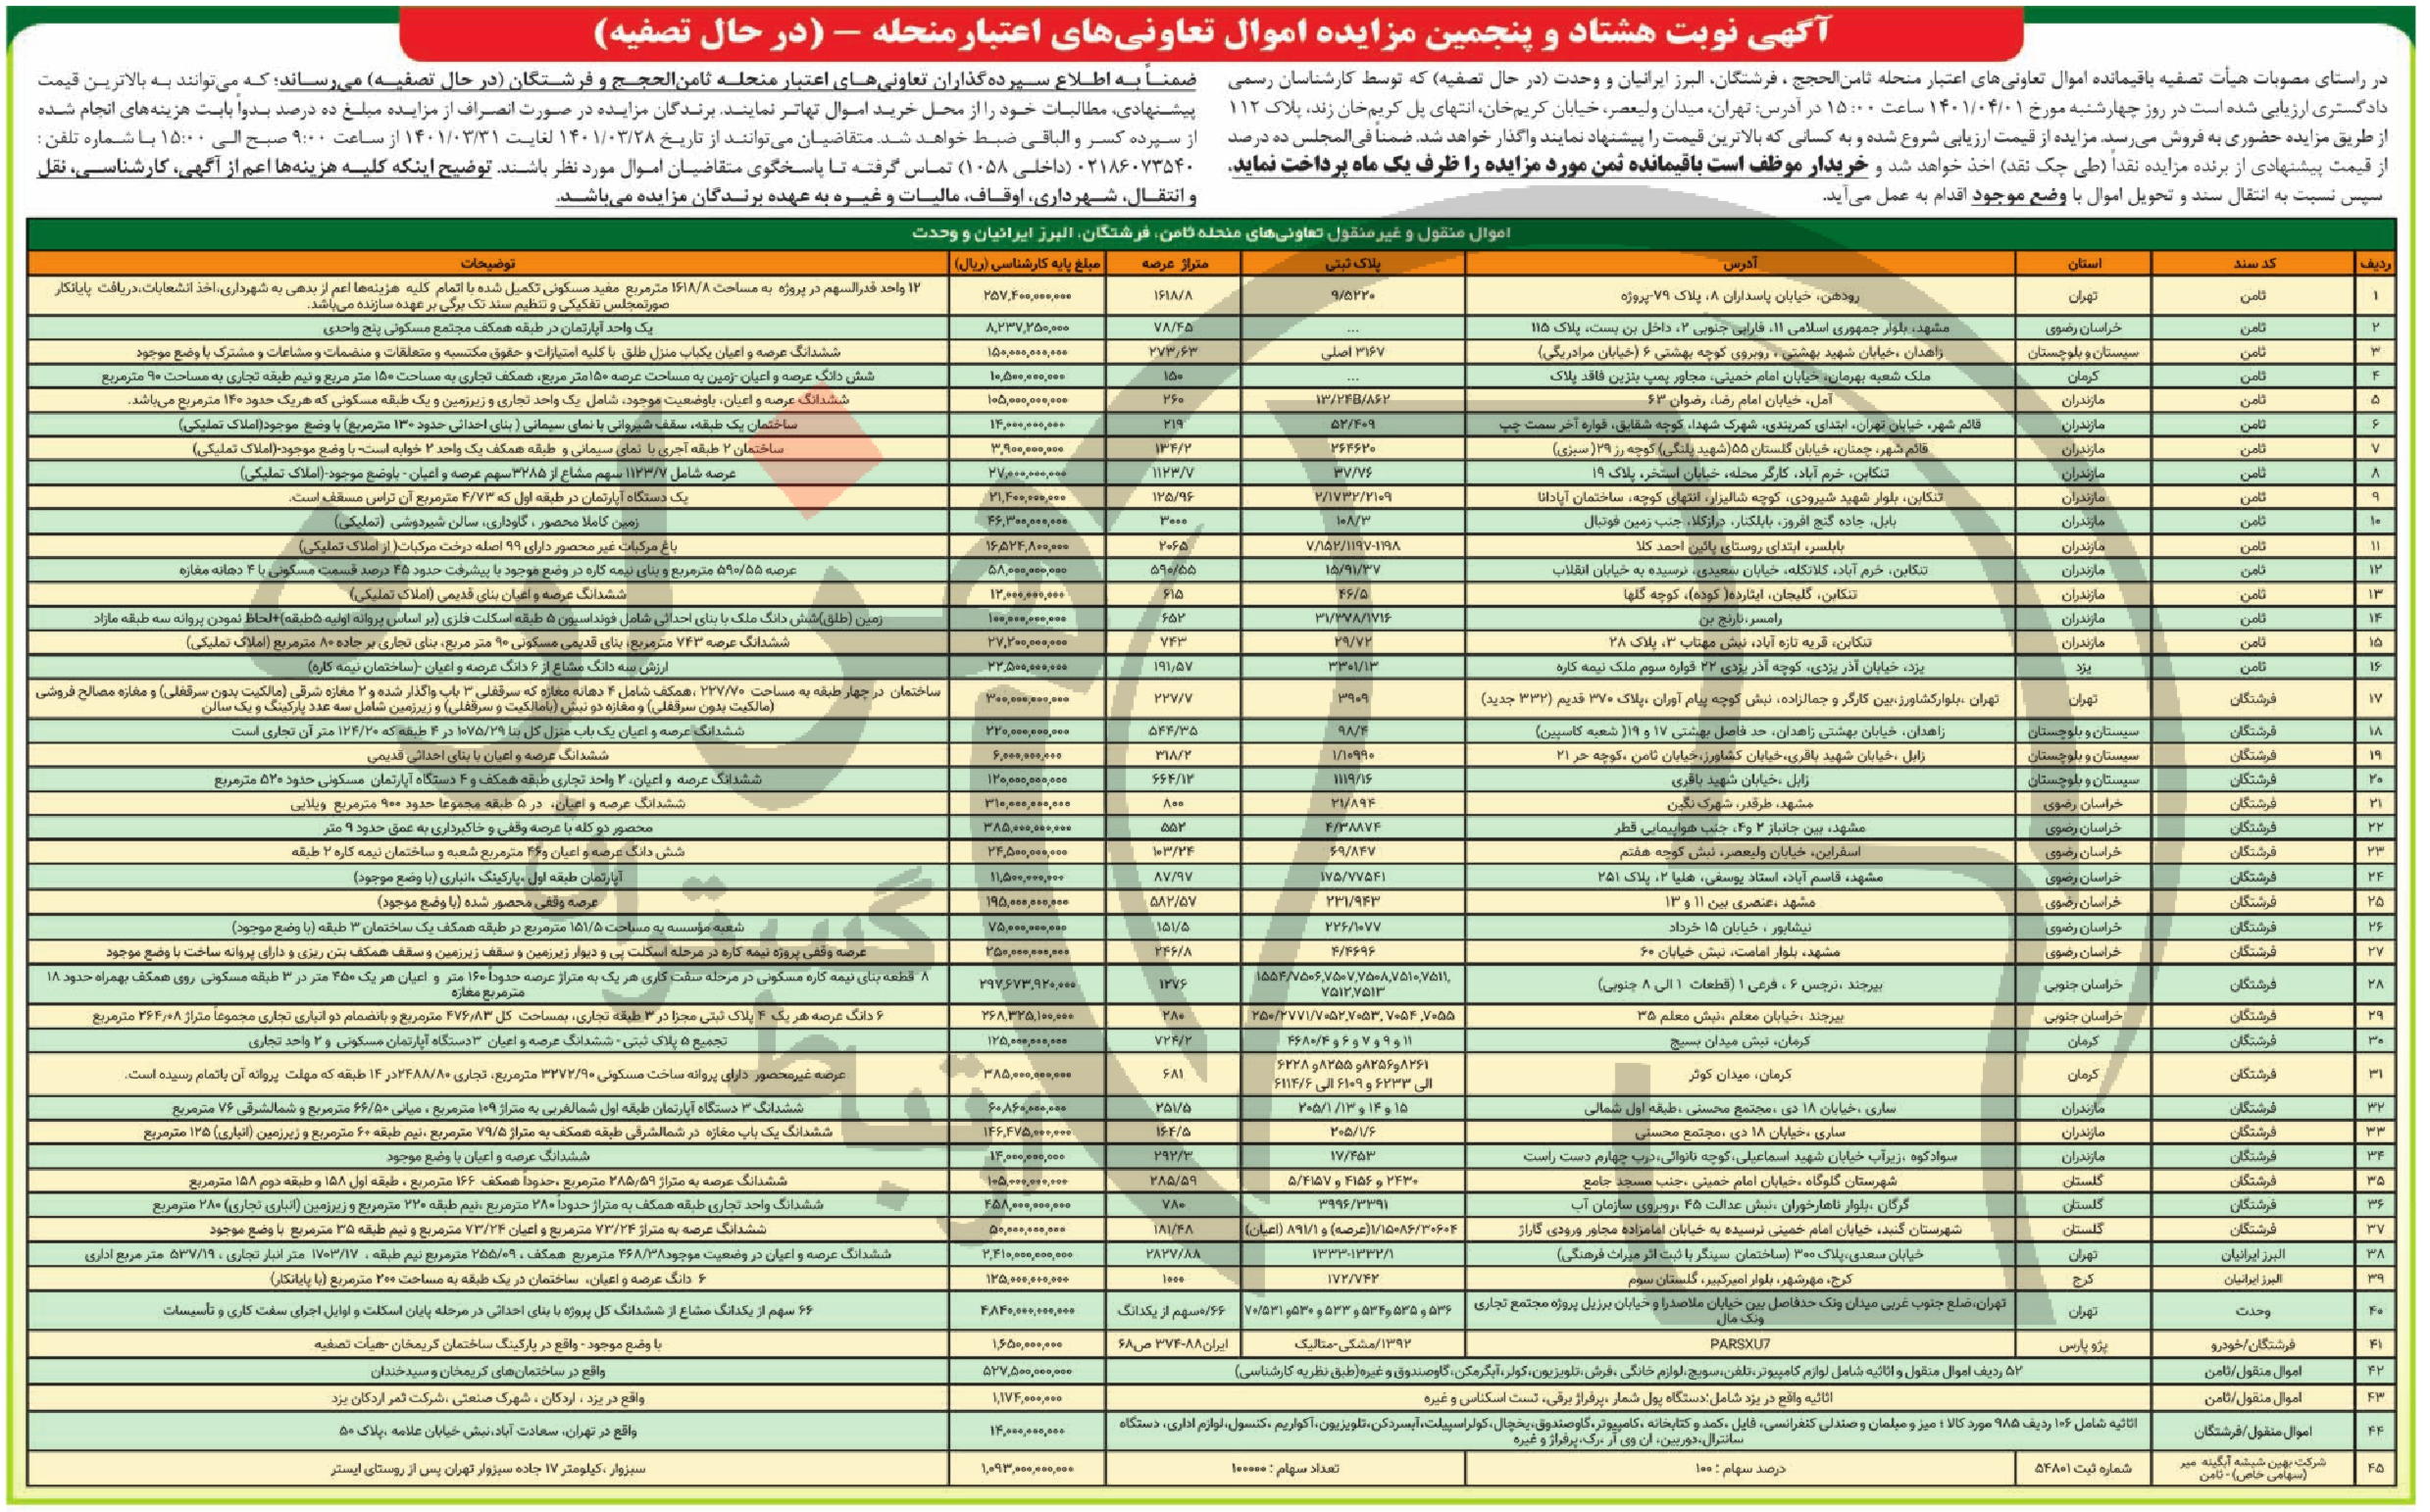 آگهی نوبت هشتاد و پنجمین مزایده اموال تعاونی‌های اعتبار منحله – (در حال تصفیه)
در راستای مصوبات هیأت تصفیه باقیمانده اموال تعاونی‌های اعتبار منحله ثامن‌الحجج ، فرشتگان، البرز ایرانیان و وحدت (در حال تصفیه) که توسط کارشناسان رسمی
دادگستری ارزیابی شده است در روز چهارشنبه مورخ ۱۴۰۱/۰۴/۰۱ ساعت ۱۵:۰۰ در آدرس: تهران، میدان ولیعصر، خیابان کریم‌خان، انتهای پل کریم‌خان زند، پلاک ۱۱۲
از طریق مزایده حضوری به فروش می‌رسد. مزایده از قیمت ارزیابی شروع شده و به کسانی که بالاترین قیمت را پیشنهاد نمایند واگذار خواهد شد. ضمناً فی‌المجلس ده درصد
از قیمت پیشنهادی از برنده مزایده نقداً (طی چک نقد) اخذ خواهد شد و خریدار موظف است باقیمانده ثمن مورد مزایده را ظرف یک ماه پرداخت نماید،
سپس نسبت به انتقال سند و تحویل اموال با وضع موجود اقدام به عمل می‌آید.
ضمناً به اطلاع سپرده‌گذاران تعاونی‌های اعتبار منحله ثامن‌الحجج و فرشتگان (در حال تصفیه) می‌رساند؛ که می‌توانند به بالاترین قیمت
پیشنهادی، مطالبات خود را از محل خرید اموال تهاتر نمایند. برندگان مزایده در صورت انصراف از مزایده مبلغ ده درصد بدواً بابت هزینه‌های انجام شده
از سپرده کسر و الباقی ضبط خواهد شد. متقاضیان می‌توانند از تاریخ ۱۴۰۱/۰۳/۲۸ لغایت ۱۴۰۱/۰۳/۳۱ از ساعت ۹:۰۰ صبح الی ۱۵:۰۰ با شماره تلفن :
۰۲۱۸۶۰۷۳۵۴۰ (داخلی ۱۰۵۸) تماس گرفته تا پاسخگوی متقاضیان اموال مورد نظر باشند. توضیح اینکه کلیه هزینه‌ها اعم از آگهی، کارشناسی، نقل
و انتقال، شهرداری، اوقاف، مالیات و غیره به عهده برندگان مزایده می‌باشد.
اموال منقول و غیرمنقول تعاونی‌های منحله ثامن، فرشتگان، البرز ایرانیان و وحدت
ردیف کد سند استان آدرس پلاک ثبتی متراژ عرصه مبلغ پایه کارشناسی (ریال) توضیحات
۱ ثامن تهران رودهن، خیابان پاسداران ۸، پلاک ۷۹-پروژه ۹/۵۲۲۰ ۱۶۱۸/۸ ۲۵۷,۴۰۰,۰۰۰,۰۰۰ ۱۲ واحد قدرالسهم در پروژه به مساحت ۱۶۱۸/۸ مترمربع مفید مسکونی تکمیل شده با اتمام کلیه هزینه‌ها اعم از بدهی به شهرداری،اخذ انشعابات،دریافت پایانکار
صورتمجلس تفکیکی و تنظیم سند تک برگی بر عهده سازنده می‌باشد.
۲ ثامن خراسان رضوی مشهد، بلوار جمهوری اسلامی ۱۱، فارابی جنوبی ۲، داخل بن بست، پلاک ۱۱۵ ... ۷۸/۴۵ ۸,۲۳۷,۲۵۰,۰۰۰ یک واحد آپارتمان در طبقه همکف مجتمع مسکونی پنج واحدی
۳ ثامن سیستان و بلوچستان زاهدان ،خیابان شهید بهشتی ، روبروی کوچه بهشتی ۶ (خیابان مرادریگی) ۳۱۶۷ اصلی ۲۷۳/۶۳ ۱۵۰,۰۰۰,۰۰۰,۰۰۰ ششدانگ عرصه و اعیان یکباب منزل طلق با کلیه امتیازات و حقوق مکتسبه و متعلقات و منضمات و مشاعات و مشترک با وضع موجود
۴ ثامن کرمان ملک شعبه بهرمان، خیابان امام خمینی، مجاور پمپ بنزین فاقد پلاک ... ۱۵۰ ۱۰,۵۰۰,۰۰۰,۰۰۰ شش دانگ عرصه و اعیان -زمین به مساحت عرصه ۱۵۰متر مربع، همکف تجاری به مساحت ۱۵۰ متر مربع و نیم طبقه تجاری به مساحت ۹۰ مترمربع
۵ ثامن مازندران آمل، خیابان امام رضا، رضوان ۶۳ ۱۳/۲۴B/۸۶۲ ۲۶۰ ۱۰۵,۰۰۰,۰۰۰,۰۰۰ ششدانگ عرصه و اعیان، باوضعیت موجود، شامل یک واحد تجاری و زیرزمین و یک طبقه مسکونی که هریک حدود ۱۴۰ مترمربع می‌باشد.
۶ ثامن مازندران قائم شهر، خیابان تهران، ابتدای کمربندی، شهرک شهدا، کوچه شقایق، قواره آخر سمت چپ ۵۲/۴۰۹ ۲۱۹ ۱۴,۰۰۰,۰۰۰,۰۰۰ ساختمان یک طبقه، سقف شیروانی با نمای سیمانی ( بنای احداثی حدود ۱۳۰ مترمربع) با وضع موجود(املاک تملیکی)
۷ ثامن مازندران قائم شهر، چمنان، خیابان گلستان ۵۵(شهید پلنگی) کوچه رز ۲۹( سبزی) ۲۶۴۶۲۰ ۱۳۴/۲ ۳,۹۰۰,۰۰۰,۰۰۰ ساختمان ۲ طبقه آجری با نمای سیمانی و طبقه همکف یک واحد ۲ خوابه است- با وضع موجود-(املاک تملیکی)
۸ ثامن مازندران تنکابن، خرم آباد، کارگر محله، خیابان استخر، پلاک ۱۹ ۳۷/۷۶ ۱۱۲۳/۷ ۲۷,۰۰۰,۰۰۰,۰۰۰ عرصه شامل ۱۱۲۳/۷ سهم مشاع از ۳۲۸۵سهم عرصه و اعیان - باوضع موجود-(املاک تملیکی)
۹ ثامن مازندران تنکابن، بلوار شهید شیرودی، کوچه شالیزار، انتهای کوچه، ساختمان آپادانا ۲/۱۷۳۲/۲۱۰۹ ۱۲۵/۹۶ ۲۱,۴۰۰,۰۰۰,۰۰۰ یک دستگاه آپارتمان در طبقه اول که ۴/۷۳ مترمربع آن تراس مسقف است.
۱۰ ثامن مازندران بابل، جاده گنج افروز، بابلکنار، درازکلا، جنب زمین فوتبال ۱۰۸/۳ ۳۰۰۰ ۴۶,۳۰۰,۰۰۰,۰۰۰ زمین کاملا محصور ، گاوداری، سالن شیردوشی (تملیکی)
۱۱ ثامن مازندران بابلسر، ابتدای روستای پائین احمد کلا ۷/۱۵۲/۱۱۹۷-۱۱۹۸ ۲۰۶۵ ۱۶,۵۲۴,۸۰۰,۰۰۰ باغ مرکبات غیر محصور دارای ۹۹ اصله درخت مرکبات( از املاک تملیکی)
۱۲ ثامن مازندران تنکابن، خرم آباد، کلاتکله، خیابان سعیدی، نرسیده به خیابان انقلاب ۱۵/۹۱/۳۷ ۵۹۰/۵۵ ۵۸,۰۰۰,۰۰۰,۰۰۰ عرصه ۵۹۰/۵۵ مترمربع و بنای نیمه کاره در وضع موجود با پیشرفت حدود ۴۵ درصد قسمت مسکونی با ۴ دهانه مغازه
۱۳ ثامن مازندران تنکابن، گلیجان، ایثارده( کوده)، کوچه گلها ۴۶/۵ ۶۱۵ ۱۲,۰۰۰,۰۰۰,۰۰۰ ششدانگ عرصه و اعیان بنای قدیمی (املاک تملیکی)
۱۴ ثامن مازندران رامسر،نارنج بن ۳۱/۳۷۸/۱۷۱۶ ۶۵۲ ۱۰۰,۰۰۰,۰۰۰,۰۰۰ زمین (طلق)شش دانگ ملک با بنای احداثی شامل فونداسیون ۵ طبقه اسکلت فلزی (بر اساس پروانه اولیه ۵طبقه)+لحاظ نمودن پروانه سه طبقه مازاد
۱۵ ثامن مازندران تنکابن، قریه تازه آباد، نبش مهتاب ۳، پلاک ۲۸ ۲۹/۷۲ ۷۴۳ ۲۷,۲۰۰,۰۰۰,۰۰۰ ششدانگ عرصه ۷۴۳ مترمربع، بنای قدیمی مسکونی ۹۰ متر مربع، بنای تجاری بر جاده ۸۰ مترمربع (املاک تملیکی)
۱۶ ثامن یزد یزد، خیابان آذر یزدی، کوچه آذر یزدی ۲۲ قواره سوم ملک نیمه کاره ۳۳۰۱/۱۳ ۱۹۱/۵۷ ۲۲,۵۰۰,۰۰۰,۰۰۰ ارزش سه دانگ مشاع از ۶ دانگ عرصه و اعیان -(ساختمان نیمه کاره)
۱۷ فرشتگان تهران تهران ،بلوارکشاورز،بین کارگر و جمالزاده، نبش کوچه پیام آوران ،پلاک ۳۷۰ قدیم (۳۳۲ جدید) ۳۹۰۹ ۲۲۷/۷ ۳۰۰,۰۰۰,۰۰۰,۰۰۰ ساختمان در چهار طبقه به مساحت ۲۲۷/۷۰ ،همکف شامل ۴ دهانه مغازه که سرقفلی ۳ باب واگذار شده و ۲ مغازه شرقی (مالکیت بدون سرقفلی) و مغازه مصالح فروشی
(مالکیت بدون سرقفلی) و مغازه دو نبش (بامالکیت و سرقفلی) و زیرزمین شامل سه عدد پارکینگ و یک سالن
۱۸ فرشتگان سیستان و بلوچستان زاهدان، خیابان بهشتی زاهدان، حد فاصل بهشتی ۱۷ و ۱۹( شعبه کاسپین) ۹۸/۴ ۵۴۴/۳۵ ۲۲۰,۰۰۰,۰۰۰,۰۰۰ ششدانگ عرصه و اعیان یک باب منزل کل بنا ۱۰۷۵/۲۹ در ۴ طبقه که ۱۲۴/۲۰ متر آن تجاری است
۱۹ فرشتگان سیستان و بلوچستان زابل ،خیابان شهید باقری،خیابان کشاورز،خیابان ثامن ،کوچه حر ۲۱ ۱/۱۰۹۹۰ ۳۱۸/۲ ۶,۰۰۰,۰۰۰,۰۰۰ ششدانگ عرصه و اعیان با بنای احداثی قدیمی
۲۰ فرشتگان سیستان و بلوچستان زابل ،خیابان شهید باقری ۱۱۱۹/۱۶ ۶۶۴/۱۲ ۱۲۰,۰۰۰,۰۰۰,۰۰۰ ششدانگ عرصه و اعیان، ۲ واحد تجاری طبقه همکف و ۴ دستگاه آپارتمان مسکونی حدود ۵۲۰ مترمربع
۲۱ فرشتگان خراسان رضوی مشهد، طرقدر، شهرک نگین ۲۱/۸۹۴ ۸۰۰ ۳۱۰,۰۰۰,۰۰۰,۰۰۰ ششدانگ عرصه و اعیان، در ۵ طبقه مجموعا حدود ۹۰۰ مترمربع ویلایی
۲۲ فرشتگان خراسان رضوی مشهد، بین جانباز ۲ و۴، جنب هواپیمایی قطر ۴/۳۸۸۷۴ ۵۵۲ ۳۸۵,۰۰۰,۰۰۰,۰۰۰ محصور دو کله با عرصه وقفی و خاکبرداری به عمق حدود ۹ متر
۲۳ فرشتگان خراسان رضوی اسفراین، خیابان ولیعصر، نبش کوچه هفتم ۶۹/۸۴۷ ۱۰۳/۲۴ ۲۴,۵۰۰,۰۰۰,۰۰۰ شش دانگ عرصه و اعیان و۴۶ مترمربع شعبه و ساختمان نیمه کاره ۲ طبقه
۲۴ فرشتگان خراسان رضوی مشهد، قاسم آباد، استاد یوسفی، هلیا ۲، پلاک ۲۵۱ ۱۷۵/۷۷۵۴۱ ۸۷/۹۷ ۱۱,۵۰۰,۰۰۰,۰۰۰ آپارتمان طبقه اول ،پارکینگ ،انباری (با وضع موجود)
۲۵ فرشتگان خراسان رضوی مشهد ،عنصری بین ۱۱ و ۱۳ ۲۳۱/۹۴۳ ۵۸۲/۵۷ ۱۹۵,۰۰۰,۰۰۰,۰۰۰ عرصه وقفی محصور شده (با وضع موجود)
۲۶ فرشتگان خراسان رضوی نیشابور ، خیابان ۱۵ خرداد ۲۲۶/۱۰۷۷ ۱۵۱/۵ ۷۵,۰۰۰,۰۰۰,۰۰۰ شعبه مؤسسه به مساحت ۱۵۱/۵ مترمربع در طبقه همکف یک ساختمان ۳ طبقه (با وضع موجود)
۲۷ فرشتگان خراسان رضوی مشهد، بلوار امامت، نبش خیابان ۶۰ ۴/۴۶۹۶ ۲۴۶/۸ ۲۵۰,۰۰۰,۰۰۰,۰۰۰ عرصه وقفی پروژه نیمه کاره در مرحله اسکلت پی و دیوار زیرزمین و سقف زیرزمین و سقف همکف بتن ریزی و دارای پروانه ساخت با وضع موجود
۲۸ فرشتگان خراسان جنوبی بیرجند ،نرجس ۶ ، فرعی ۱ (قطعات ۱ الی ۸ جنوبی) ۱۵۵۴/۷۵۰۶,۷۵۰۷,۷۵۰۸,۷۵۱۰,۷۵۱۱,
۷۵۱۲,۷۵۱۳ ۱۲۷۶ ۲۹۷,۶۷۳,۹۲۰,۰۰۰ ۸ قطعه بنای نیمه کاره مسکونی در مرحله سفت کاری هر یک به متراژ عرصه حدوداً ۱۶۰ متر و اعیان هر یک ۴۵۰ متر در ۳ طبقه مسکونی روی همکف بهمراه حدود ۱۸
مترمربع مغازه
۲۹ فرشتگان خراسان جنوبی بیرجند ،خیابان معلم ،نبش معلم ۳۵ ۲۵۰/۲۷۷۱/۷۰۵۲,۷۰۵۳, ۷۰۵۴ ,۷۰۵۵ ۲۸۰ ۲۶۸,۳۲۵,۱۰۰,۰۰۰ ۶ دانگ عرصه هر یک ۴ پلاک ثبتی مجزا در ۳ طبقه تجاری، بمساحت کل ۴۷۶/۸۳ مترمربع و بانضمام دو انباری تجاری مجموعاً متراژ ۲۶۴/۰۸ مترمربع
۳۰ فرشتگان کرمان کرمان، نبش میدان بسیج ۱۱ و ۹ و ۷ و ۶ و ۴۶۸۰/۴ ۷۲۴/۲ ۱۲۵,۰۰۰,۰۰۰,۰۰۰ تجمیع ۵ پلاک ثبتی - ششدانگ عرصه و اعیان ۳دستگاه آپارتمان مسکونی و ۲ واحد تجاری
۳۱ فرشتگان کرمان کرمان، میدان کوثر ۸۲۶۱و۸۲۵۶و ۸۲۵۵و ۶۲۲۸
الی ۶۲۳۳ و ۶۱۰۹ الی ۶۱۱۴/۶ ۶۸۱ ۳۸۵,۰۰۰,۰۰۰,۰۰۰ عرصه غیرمحصور دارای پروانه ساخت مسکونی ۳۲۷۲/۹۰ مترمربع، تجاری ۲۴۸۸/۸۰در ۱۴ طبقه که مهلت پروانه آن باتمام رسیده است.
۳۲ فرشتگان مازندران ساری ،خیابان ۱۸ دی ،مجتمع محسنی ،طبقه اول شمالی ۱۵ و ۱۴ و ۲۰۵/۱/۱۳ ۲۵۱/۵ ۶۰,۸۶۰,۰۰۰,۰۰۰ ششدانگ ۳ دستگاه آپارتمان طبقه اول شمالغربی به متراژ ۱۰۹ مترمربع ، میانی ۶۶/۵۰ مترمربع و شمالشرقی ۷۶ مترمربع
۳۳ فرشتگان مازندران ساری ،خیابان ۱۸ دی ،مجتمع محسنی ۲۰۵/۱/۶ ۱۶۴/۵ ۱۴۶,۴۷۵,۰۰۰,۰۰۰ ششدانگ یک باب مغازه در شمالشرقی طبقه همکف به متراژ ۷۹/۵ مترمربع ،نیم طبقه ۶۰ مترمربع و زیرزمین (انباری) ۱۲۵ مترمربع
۳۴ فرشتگان مازندران سوادکوه ،زیرآب خیابان شهید اسماعیلی،کوچه نانوائی،درب چهارم دست راست ۱۷/۴۵۳ ۲۹۲/۳ ۱۴,۰۰۰,۰۰۰,۰۰۰ ششدانگ عرصه و اعیان با وضع موجود
۳۵ فرشتگان گلستان شهرستان گلوگاه ،خیابان امام خمینی ،جنب مسجد جامع ۲۴۳۰ و ۴۱۵۶ و ۵/۴۱۵۷ ۲۸۵/۵۹ ۱۰۵,۰۰۰,۰۰۰,۰۰۰ ششدانگ عرصه به متراژ ۲۸۵/۵۹ مترمربع ،حدوداً همکف ۱۶۶ مترمربع ، طبقه اول ۱۵۸ و طبقه دوم ۱۵۸ مترمربع
۳۶ فرشتگان گلستان گرگان ،بلوار ناهارخوران، نبش عدالت ۴۵ ،روبروی سازمان آب ۳۹۹۶/۳۳۹۱ ۷۸۰ ۴۵۸,۰۰۰,۰۰۰,۰۰۰ ششدانگ واحد تجاری طبقه همکف به متراژ حدوداً ۲۸۰ مترمربع ،نیم طبقه ۲۲۰ مترمربع و زیرزمین (انباری تجاری) ۲۸۰ مترمربع
۳۷ فرشتگان گلستان شهرستان گنبد، خیابان امام خمینی نرسیده به خیابان امامزاده مجاور ورودی گاراژ ۱/۱۵۰۸۶/۳۰۶۰۴(عرصه) و ۸۹۱/۱ (اعیان) ۱۸۱/۴۸ ۵۰,۰۰۰,۰۰۰,۰۰۰ ششدانگ عرصه به متراژ ۷۳/۲۴ مترمربع و اعیان ۷۳/۲۴ مترمربع و نیم طبقه ۳۵ مترمربع با وضع موجود
۳۸ البرز ایرانیان تهران خیابان سعدی،پلاک ۳۰۰ (ساختمان سینگر با ثبت اثر میراث فرهنگی) ۱۳۳۳-۱۳۳۲/۱ ۲۸۳۷/۸۸ ۲,۴۱۰,۰۰۰,۰۰۰,۰۰۰ ششدانگ عرصه و اعیان در وضعیت موجود۴۶۸/۳۸ مترمربع همکف ، ۲۵۵/۰۹ مترمربع نیم طبقه ، ۱۷۰۳/۱۷ متر انبار تجاری ، ۵۳۷/۱۹ متر مربع اداری
۳۹ البرز ایرانیان کرج کرج، مهرشهر، بلوار امیرکبیر، گلستان سوم ۱۷۲/۷۴۲ ۱۰۰۰ ۱۲۵,۰۰۰,۰۰۰,۰۰۰ ۶ دانگ عرصه و اعیان، ساختمان در یک طبقه به مساحت ۲۰۰ مترمربع (با پایانکار)
۴۰ وحدت تهران تهران،ضلع جنوب غربی میدان ونک حدفاصل بین خیابان ملاصدرا و خیابان برزیل پروژه مجتمع تجاری
ونک مال ۵۳۶ و ۵۳۵ و ۵۳۴و ۵۳۳ و ۵۳۰و ۷۰/۵۳۱ ۰/۶۶سهم از یکدانگ ۴,۸۴۰,۰۰۰,۰۰۰,۰۰۰ ۶۶ سهم از یکدانگ مشاع از ششدانگ کل پروژه با بنای احداثی در مرحله پایان اسکلت و اوایل اجرای سفت کاری و تأسیسات
۴۱ فرشتگان/خودرو پژو پارس PARSXU7 ۱۳۹۲/مشکی-متالیک ایران۸۸-۳۷۴ ص۶۸ ۱,۶۵۰,۰۰۰,۰۰۰ با وضع موجود - واقع در پارکینگ ساختمان کریمخان -هیأت تصفیه
۴۲ اموال منقول/ثامن ۵۲ ردیف اموال منقول و اثاثیه شامل لوازم کامپیوتر،تلفن،سویچ،لوازم خانگی ،فرش،تلویزیون،کولر،آبگرمکن،گاوصندوق و غیره(طبق نظریه کارشناسی) ۵۲۷,۵۰۰,۰۰۰,۰۰۰ واقع در ساختمان‌های کریمخان و سیدخندان
۴۳ اموال منقول/ثامن اثاثیه واقع در یزد شامل:دستگاه پول شمار ،پرفراژ برقی، تست اسکناس و غیره ۱,۱۷۴,۰۰۰,۰۰۰ واقع در یزد ، اردکان ، شهرک صنعتی ،شرکت ثمر اردکان یزد
۴۴ اموال منقول/فرشتگان اثاثیه شامل ۱۰۶ ردیف ۹۸۵ مورد کالا ؛ میز و مبلمان و صندلی کنفرانسی، فایل ،کمد و کتابخانه ،کامپیوتر،گاوصندوق،یخچال،کولراسپیلت،آبسردکن،تلویزیون،آکواریم ،کنسول،لوازم اداری، دستگاه
سانترال،دوربین، ان وی آر ،رک،پرفراژ و غیره ۱۴,۰۰۰,۰۰۰,۰۰۰ واقع در تهران، سعادت آباد،نبش خیابان علامه ،پلاک ۵۰
۴۵ شرکت بهین شیشه آبگینه میر
(سهامی خاص) - ثامن شماره ثبت ۵۴۸۰۱ درصد سهام : ۱۰۰ تعداد سهام : ۱۰۰۰۰۰ ۱,۰۹۳,۰۰۰,۰۰۰,۰۰۰ سبزوار ،کیلومتر ۱۷ جاده سبزوار تهران پس از روستای ایستر